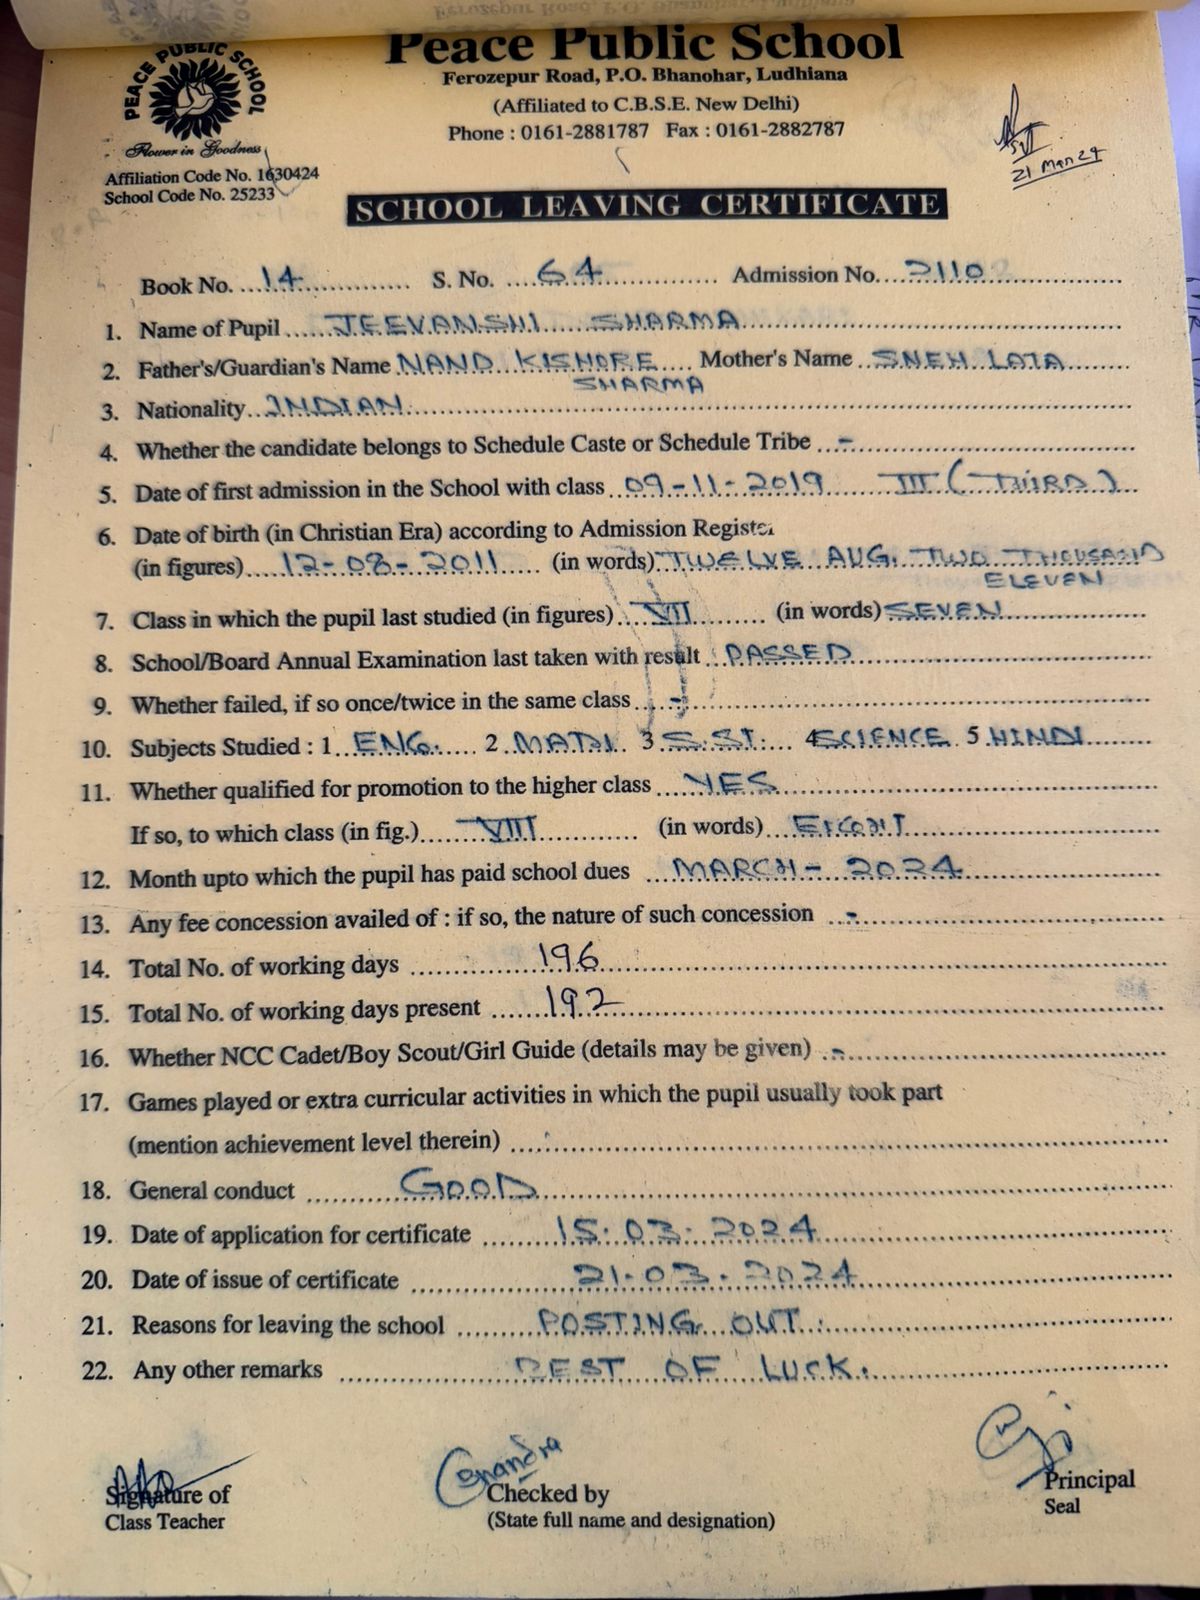 Peace Public School
Ferozepur Road, P.O. Bhanohar, Ludhiana
(Affiliated to C.B.S.E. New Delhi)
Phone : 0161-2881787 Fax : 0161-2882787
PEACE PUBLIC SCHOOL
Flower in Goodness
Affiliation Code No. 1630424
School Code No. 25233
21 Mar 24
SCHOOL LEAVING CERTIFICATE
Book No. 14 S. No. 64 Admission No. 2110
1. Name of Pupil JEEVANSHI SHARMA
2. Father's/Guardian's Name NAND KISHORE Mother's Name SNEH LATA
SHARMA
3. Nationality INDIAN
4. Whether the candidate belongs to Schedule Caste or Schedule Tribe -
5. Date of first admission in the School with class 09-11-2019 III (THIRD)
6. Date of birth (in Christian Era) according to Admission Register
(in figures) 12-08-2011 (in words) TWELVE AUG. TWO THOUSAND
ELEVEN
7. Class in which the pupil last studied (in figures) VII (in words) SEVEN
8. School/Board Annual Examination last taken with result PASSED
9. Whether failed, if so once/twice in the same class -
10. Subjects Studied : 1 ENG. 2 MATH 3 S.ST. 4 SCIENCE 5 HINDI
11. Whether qualified for promotion to the higher class YES
If so, to which class (in fig.) VIII (in words) EIGHT
12. Month upto which the pupil has paid school dues MARCH - 2024
13. Any fee concession availed of : if so, the nature of such concession -
14. Total No. of working days 196
15. Total No. of working days present 192
16. Whether NCC Cadet/Boy Scout/Girl Guide (details may be given) -
17. Games played or extra curricular activities in which the pupil usually took part
(mention achievement level therein)
18. General conduct GOOD
19. Date of application for certificate 15.03.2024
20. Date of issue of certificate 21.03.2024
21. Reasons for leaving the school POSTING OUT.
22. Any other remarks BEST OF LUCK.
Chandra
Signature of Checked by Principal
Class Teacher (State full name and designation) Seal